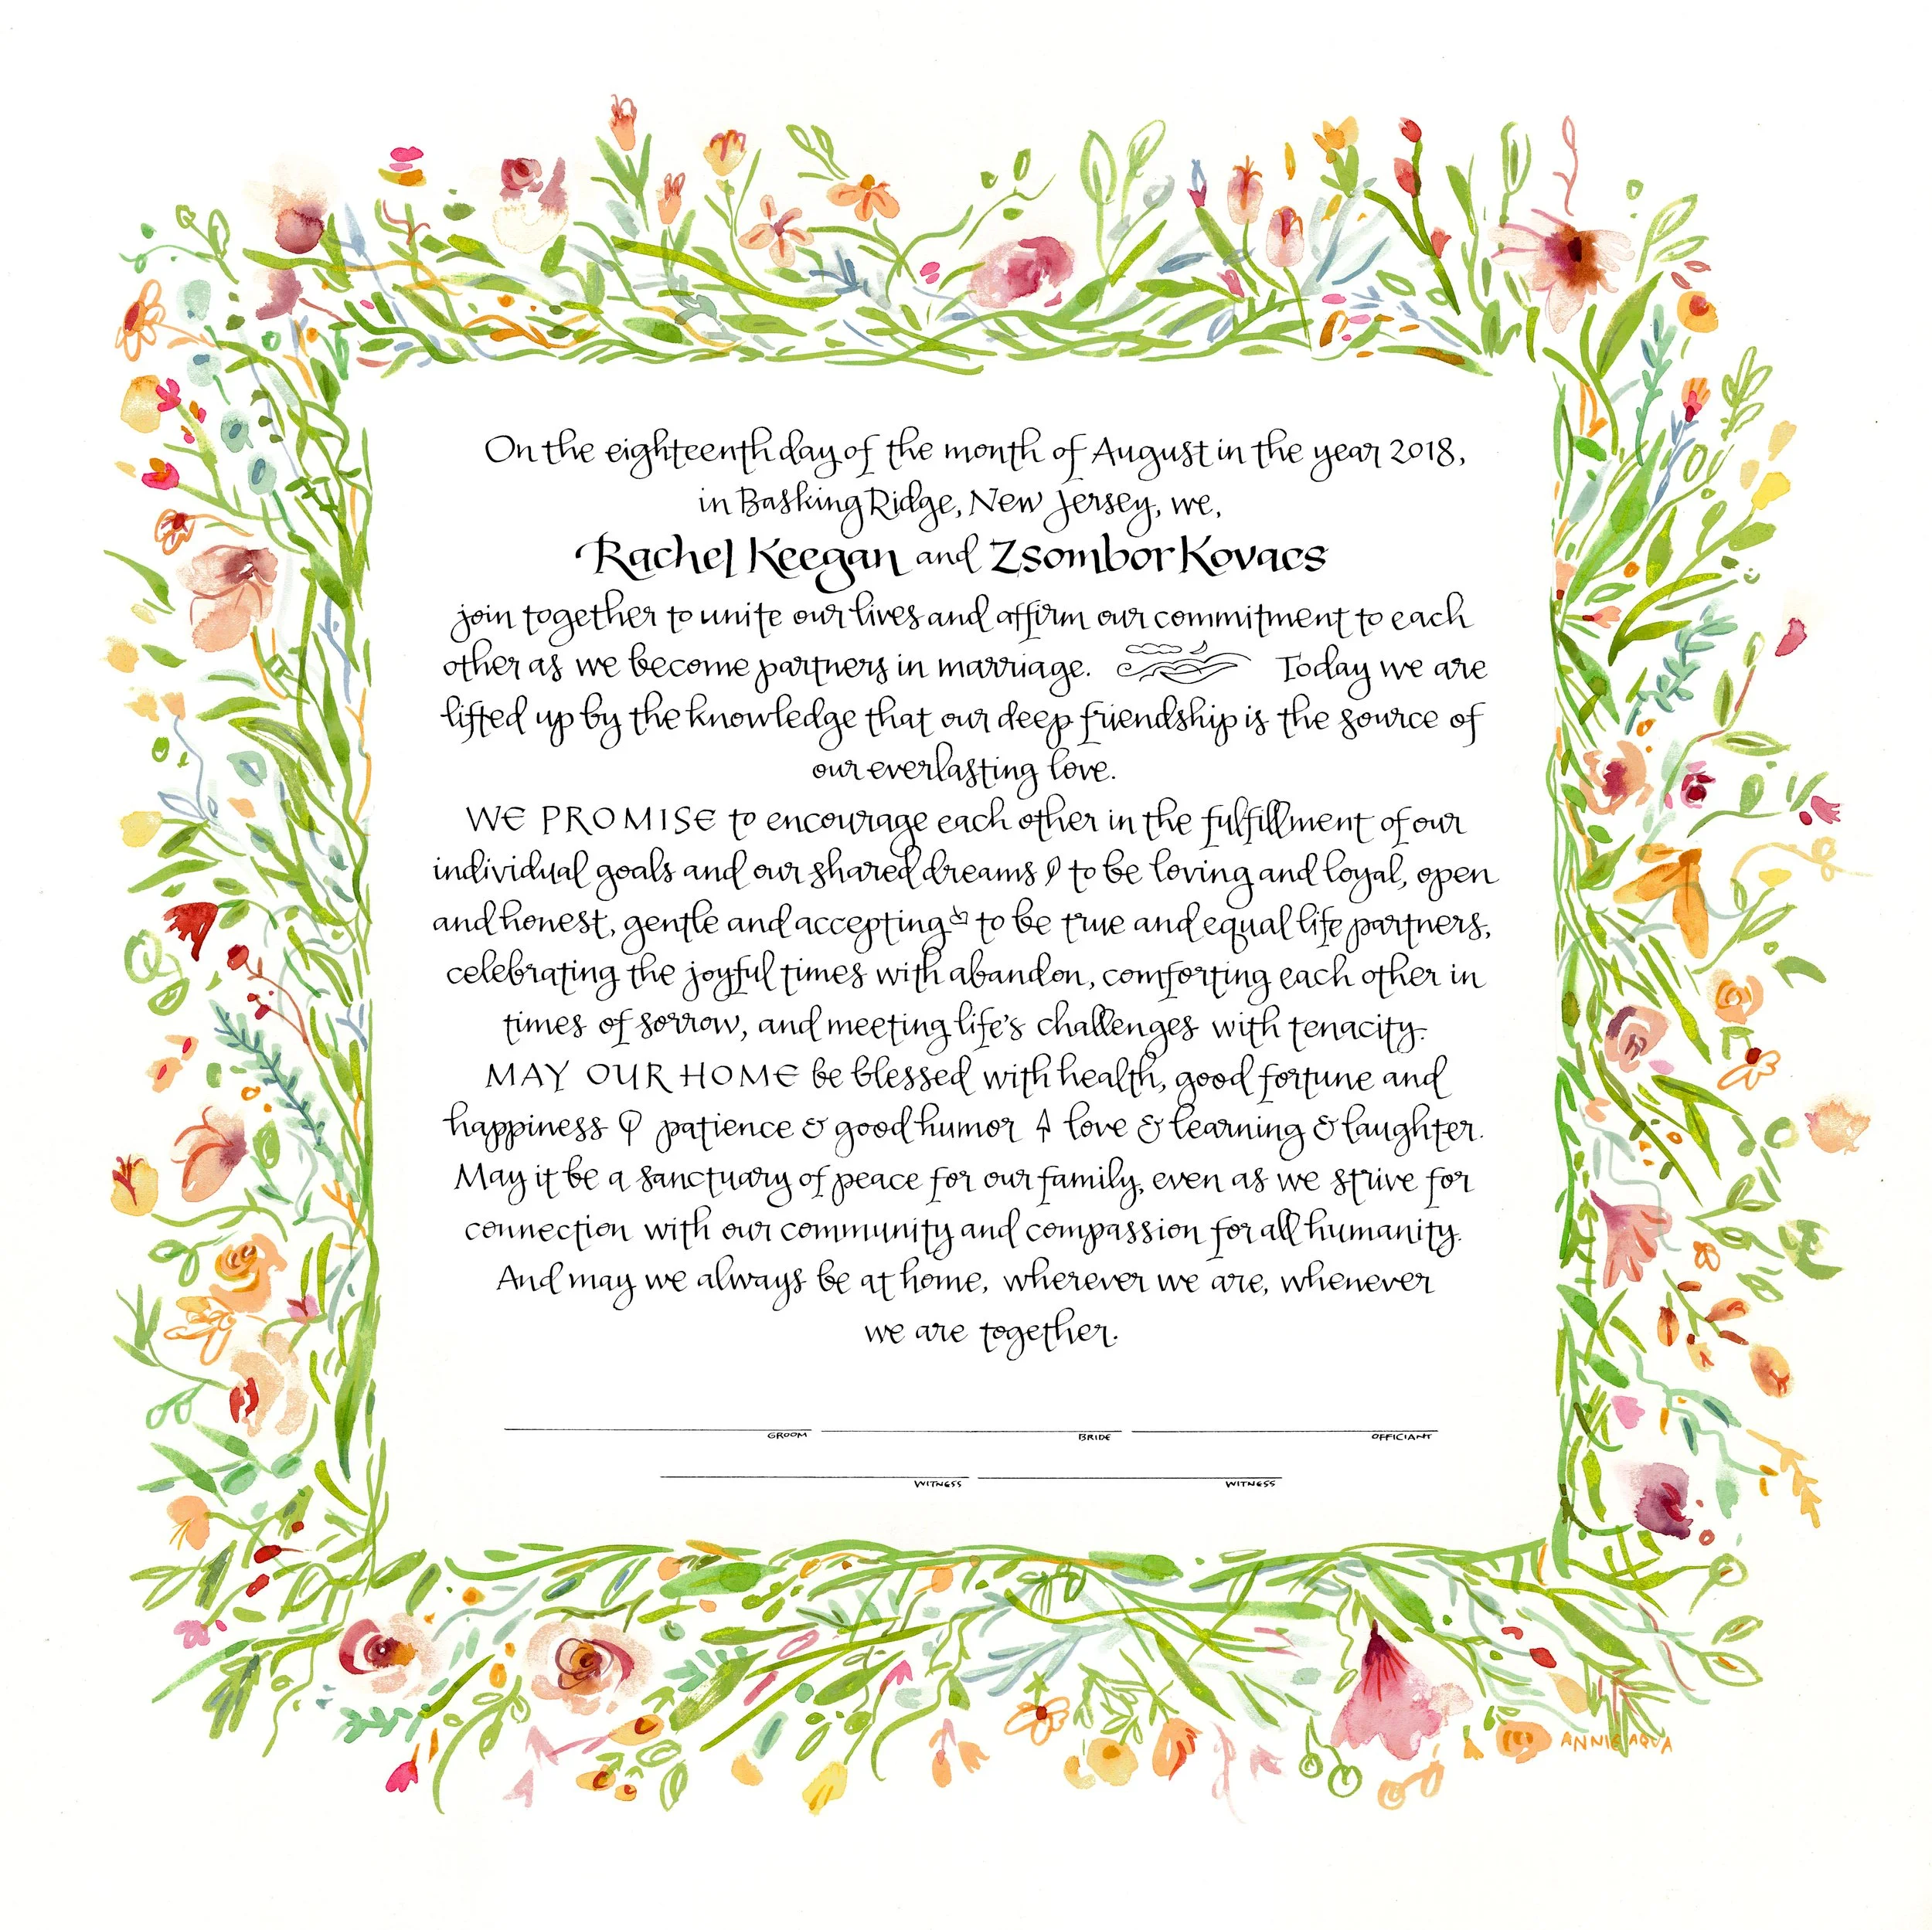 On the eighteenth day of the month of August in the year 2018,
in Basking Ridge, New Jersey, we,
Rachel Keegan and Zsombor Kovacs
join together to unite our lives and affirm our commitment to each
other as we become partners in marriage. Today we are
lifted up by the knowledge that our deep friendship is the source of
our everlasting love.
WE PROMISE to encourage each other in the fulfillment of our
individual goals and our shared dreams to be loving and loyal, open
and honest, gentle and accepting to be true and equal life partners,
celebrating the joyful times with abandon, comforting each other in
times of sorrow, and meeting life's challenges with tenacity.
MAY OUR HOME be blessed with health, good fortune and
happiness patience & good humor love & learning & laughter.
May it be a sanctuary of peace for our family, even as we strive for
connection with our community and compassion for all humanity.
And may we always be at home, wherever we are, whenever
we are together.
GROOM BRIDE OFFICIANT
WITNESS WITNESS
ANNIE AQUA